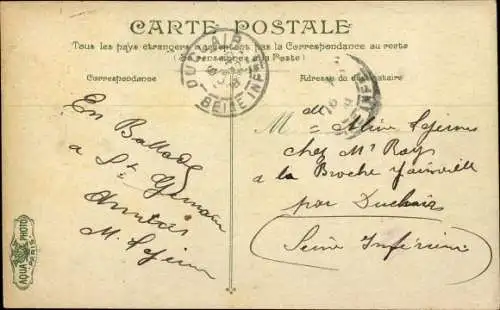 CARTE POSTALE
Tous les pays étrangers n'acceptent pas la Correspondance au recto
(Se renseigner à la Poste)
Correspondance
Adresse du destinataire
DUCLAIR
SEINE INF
En Ballade
a St Germain
M. Lejeune
Melle Aline Lejeune
chez Mr Roy
a la Broche Yainville
par Duclair
Seine Inférieure
AQUA PHOTO
PARIS